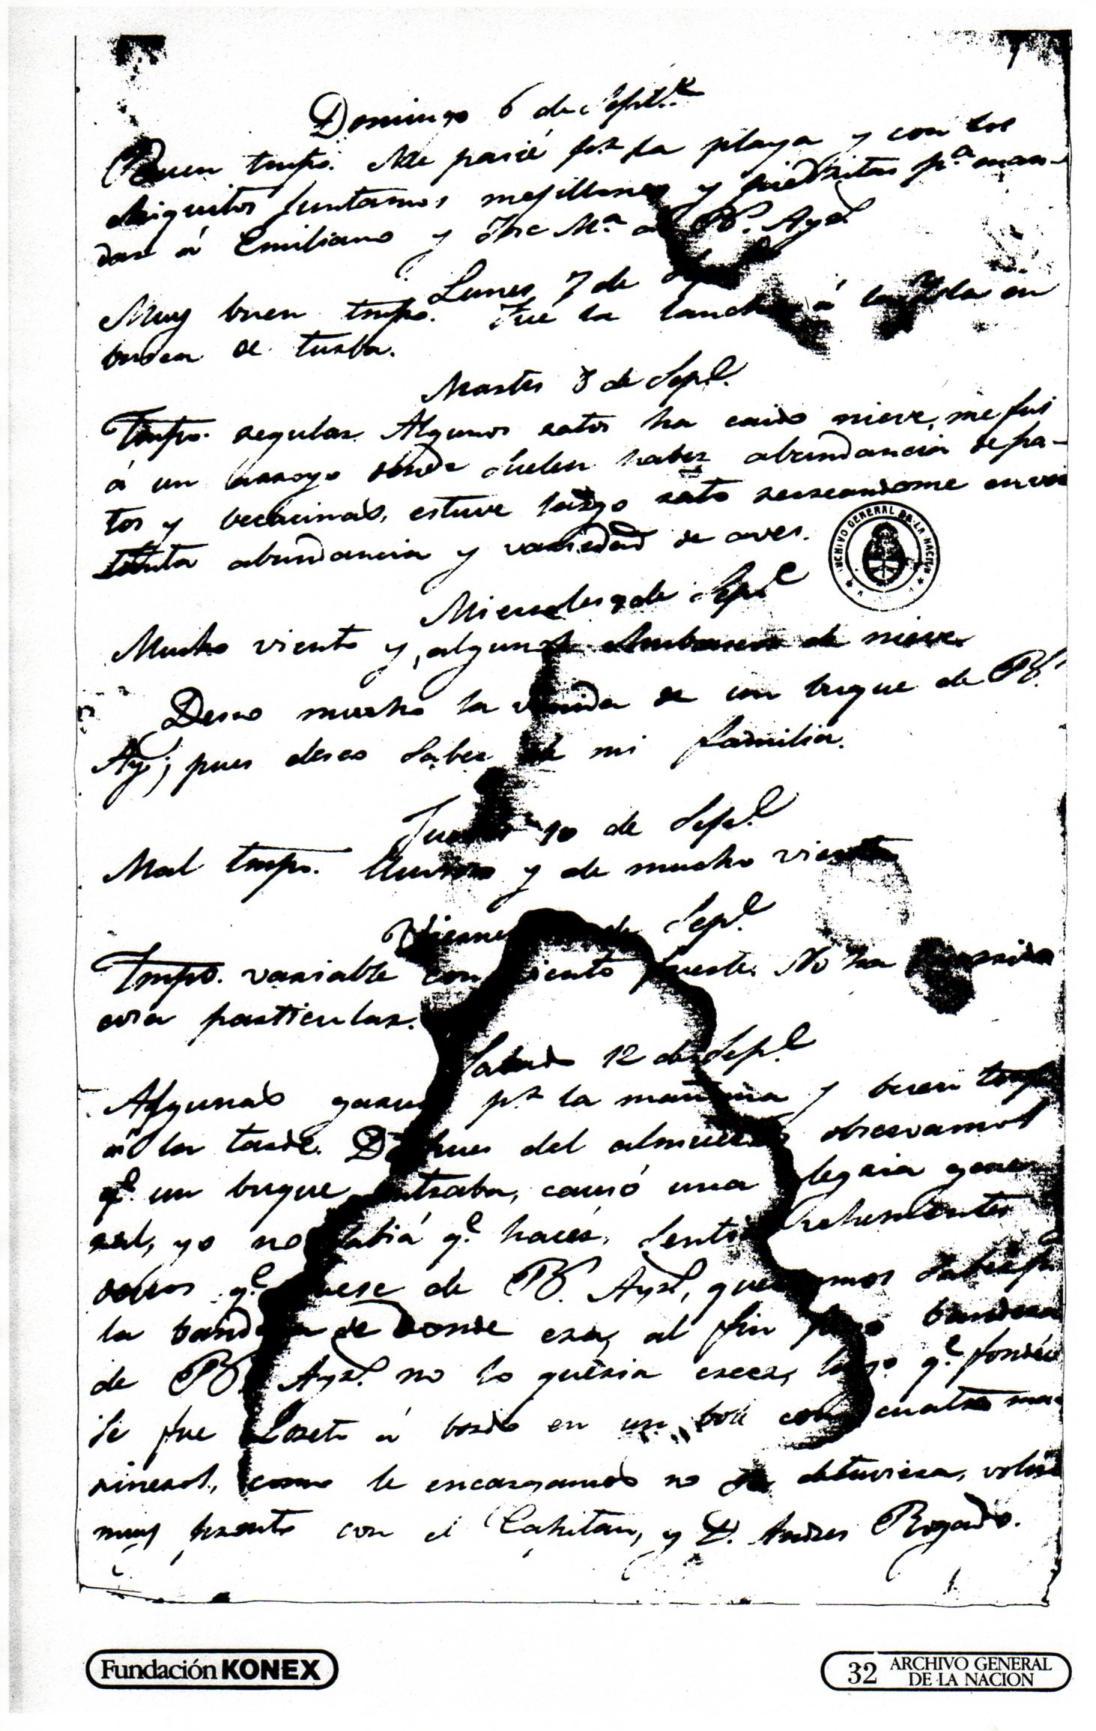 Domingo 6 de Septe.
Buen tmpo. Me pasié pr. la playa y con los
chiquitos juntamos mejillones y piedritas pa. man-
dar á Emiliano y Jose Ma. a Bs. Ays.
Lunes 7 de Sepe.
Muy buen tmpo. Fue la lancha á la Ysla en
busca de turba.
Martes 8 de Sepe.
Tmpo. regular. Algunos ratos ha caido nieve, me fui
á un arroyo donde suelen haber abundancia de pa-
tos y becacinas, estuve largo rato recreandome en ver
tanta abundancia y variedad de aves.
ARCHIVO GENERAL DE LA NACION
Miercoles 9 de Sepe.
Mucho viento y algunos chubascos de nieve.
Deseo mucho la venida de un buque de Bs.
Ays; pues deseo saber de mi familia.
Jueves 10 de Sepe.
Mal tmpo. lluvioso y de mucho viento
Viernes de Sepe.
Tmpo. variable con viento fuerte. No ha ocurrido
cosa particular.
Sabado 12 de Sepe.
Algunas garuas pr. la mañana y buen tmpo.
á la tarde. Despues del almuerzo observamos
qe. un buque entraba, causó una alegria gene-
ral, yo no sabiá qe. hacer, senti vehementes
deseos qe. fuese de Bs. Ays., queriamos saber pr.
la bandera de donde era, al fin puso bandera
de Bs. Ays. no lo queria creer, luego qe. fondió
se fue Loreto á bordo en un bote con cuatro ma-
rineros, como le encargamos no se detuviera, volvió
muy pronto con el Capitan, y D. Andres Rogado.
Fundación KONEX
32 ARCHIVO GENERAL
DE LA NACION